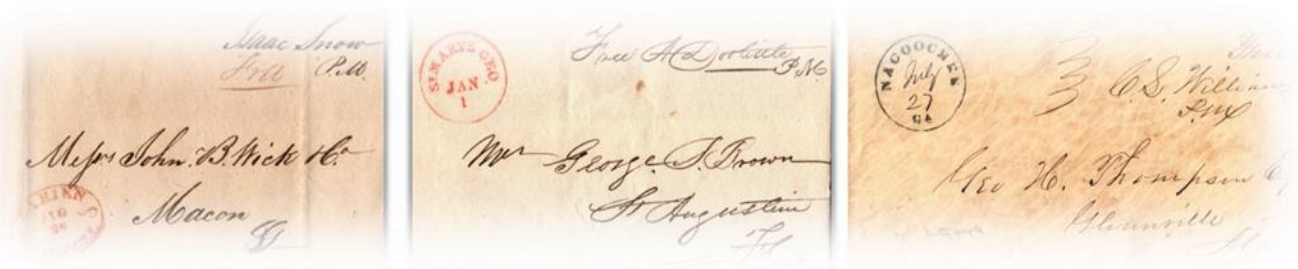 Isaac Snow
Free P.M.
Messrs John. B. Wick & Co
Macon
DARIEN
AUG
ST MARYS GEO
JAN
1
Free A Doolittle
P.M.
Mr George. T. Brown
St Augustine
NACOOCHEE
July
27
GA
C. S. Williams
P.M
Geo H. Thompson
Glennville